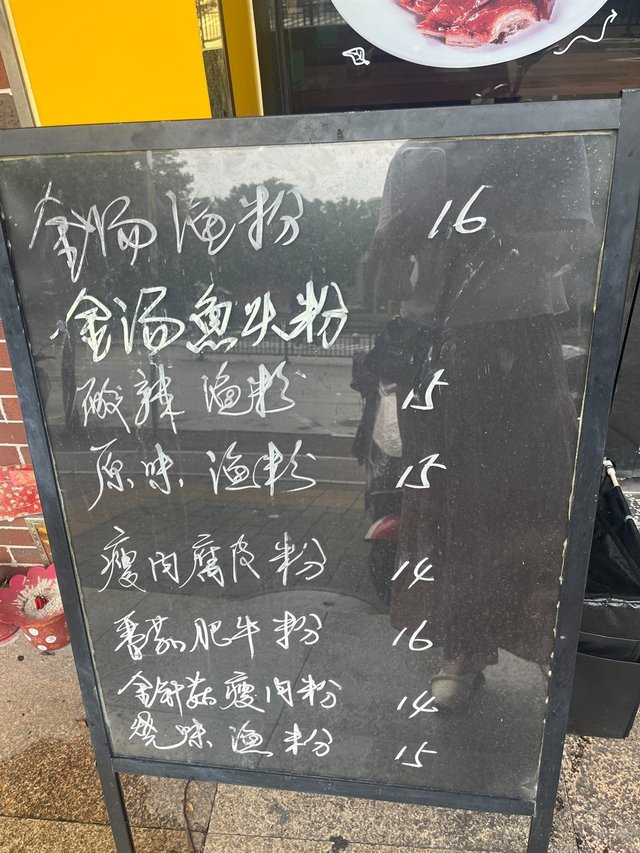 金汤渔粉 16
金汤魚头粉
酸辣渔粉 15
原味渔粉 15
瘦肉腐皮粉 14
番茄肥牛粉 16
金針菇瘦肉粉 14
烧味渔粉 15